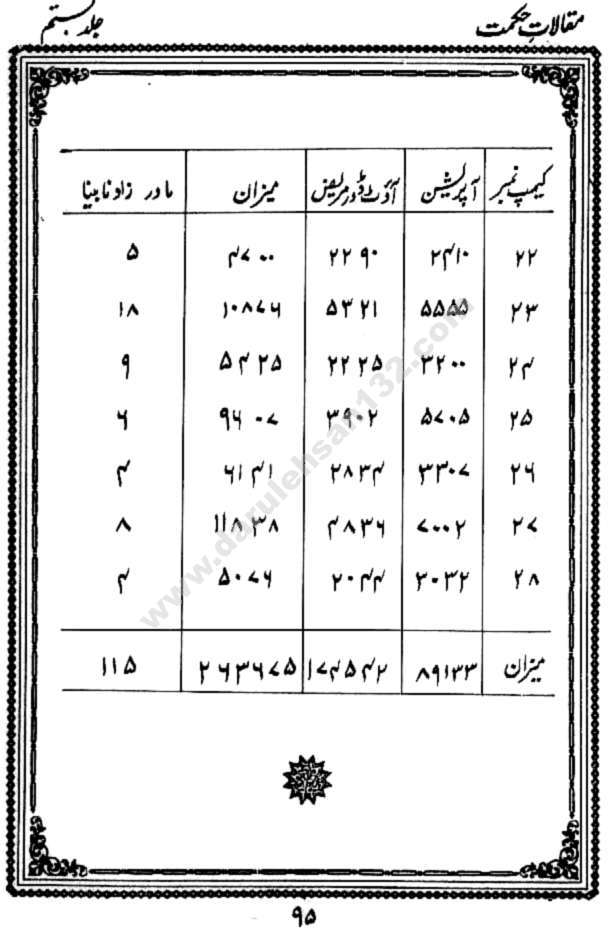 مقالاتِ حکمت جلد بستم
کیمپ نمبر آپریشن آؤٹ ڈور مریض میزان مادر زاد نابینا
۲۲ ۲۴۱۰ ۲۲۹۰ ۴۷۰۰ ۵
۲۳ ۵۵۵۵ ۵۳۲۱ ۱۰۸۷۶ ۱۸
۲۴ ۳۲۰۰ ۲۲۲۵ ۵۴۲۵ ۹
۲۵ ۵۷۰۵ ۳۹۰۲ ۹۶۰۷ ۶
۲۶ ۳۳۰۷ ۲۸۳۴ ۶۱۴۱ ۴
۲۷ ۷۰۰۲ ۴۸۳۶ ۱۱۸۳۸ ۸
۲۸ ۳۰۳۲ ۲۰۴۴ ۵۰۷۶ ۴
میزان ۸۹۱۳۳ ۱۷۴۵۴۲ ۲۶۳۶۷۵ ۱۱۵
www.darulehsan132.com
۹۵